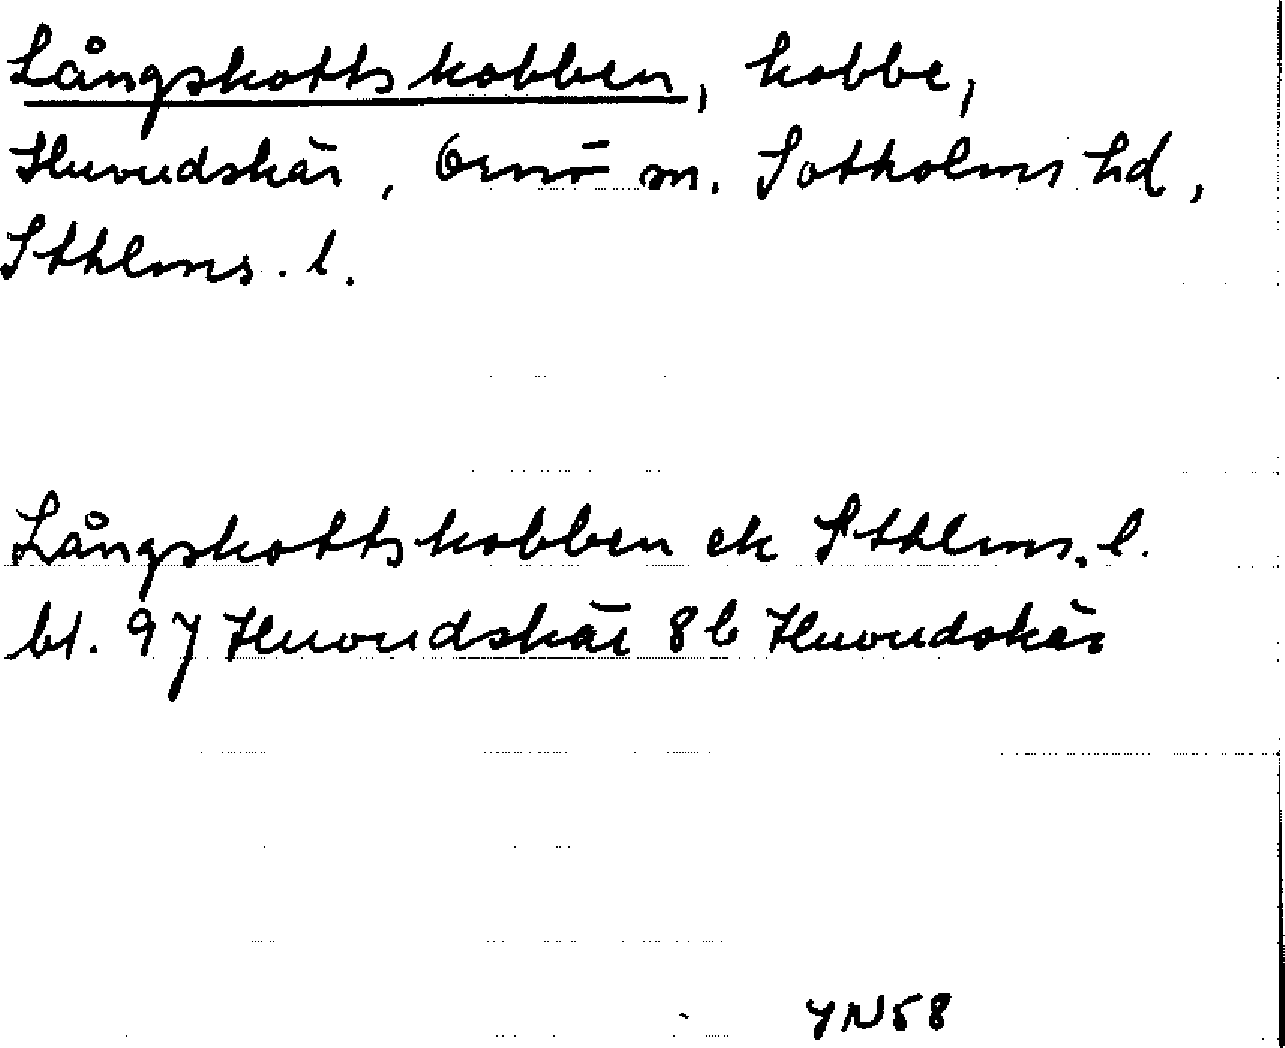 Långskottskobben, kobbe,
Huvudskär, Ornö sn. Sotholms hd,
Sthlms. l.
Långskottskobben ek Sthlms. l.
bl. 97 Huvudskär 8b Huvudskär
YN58